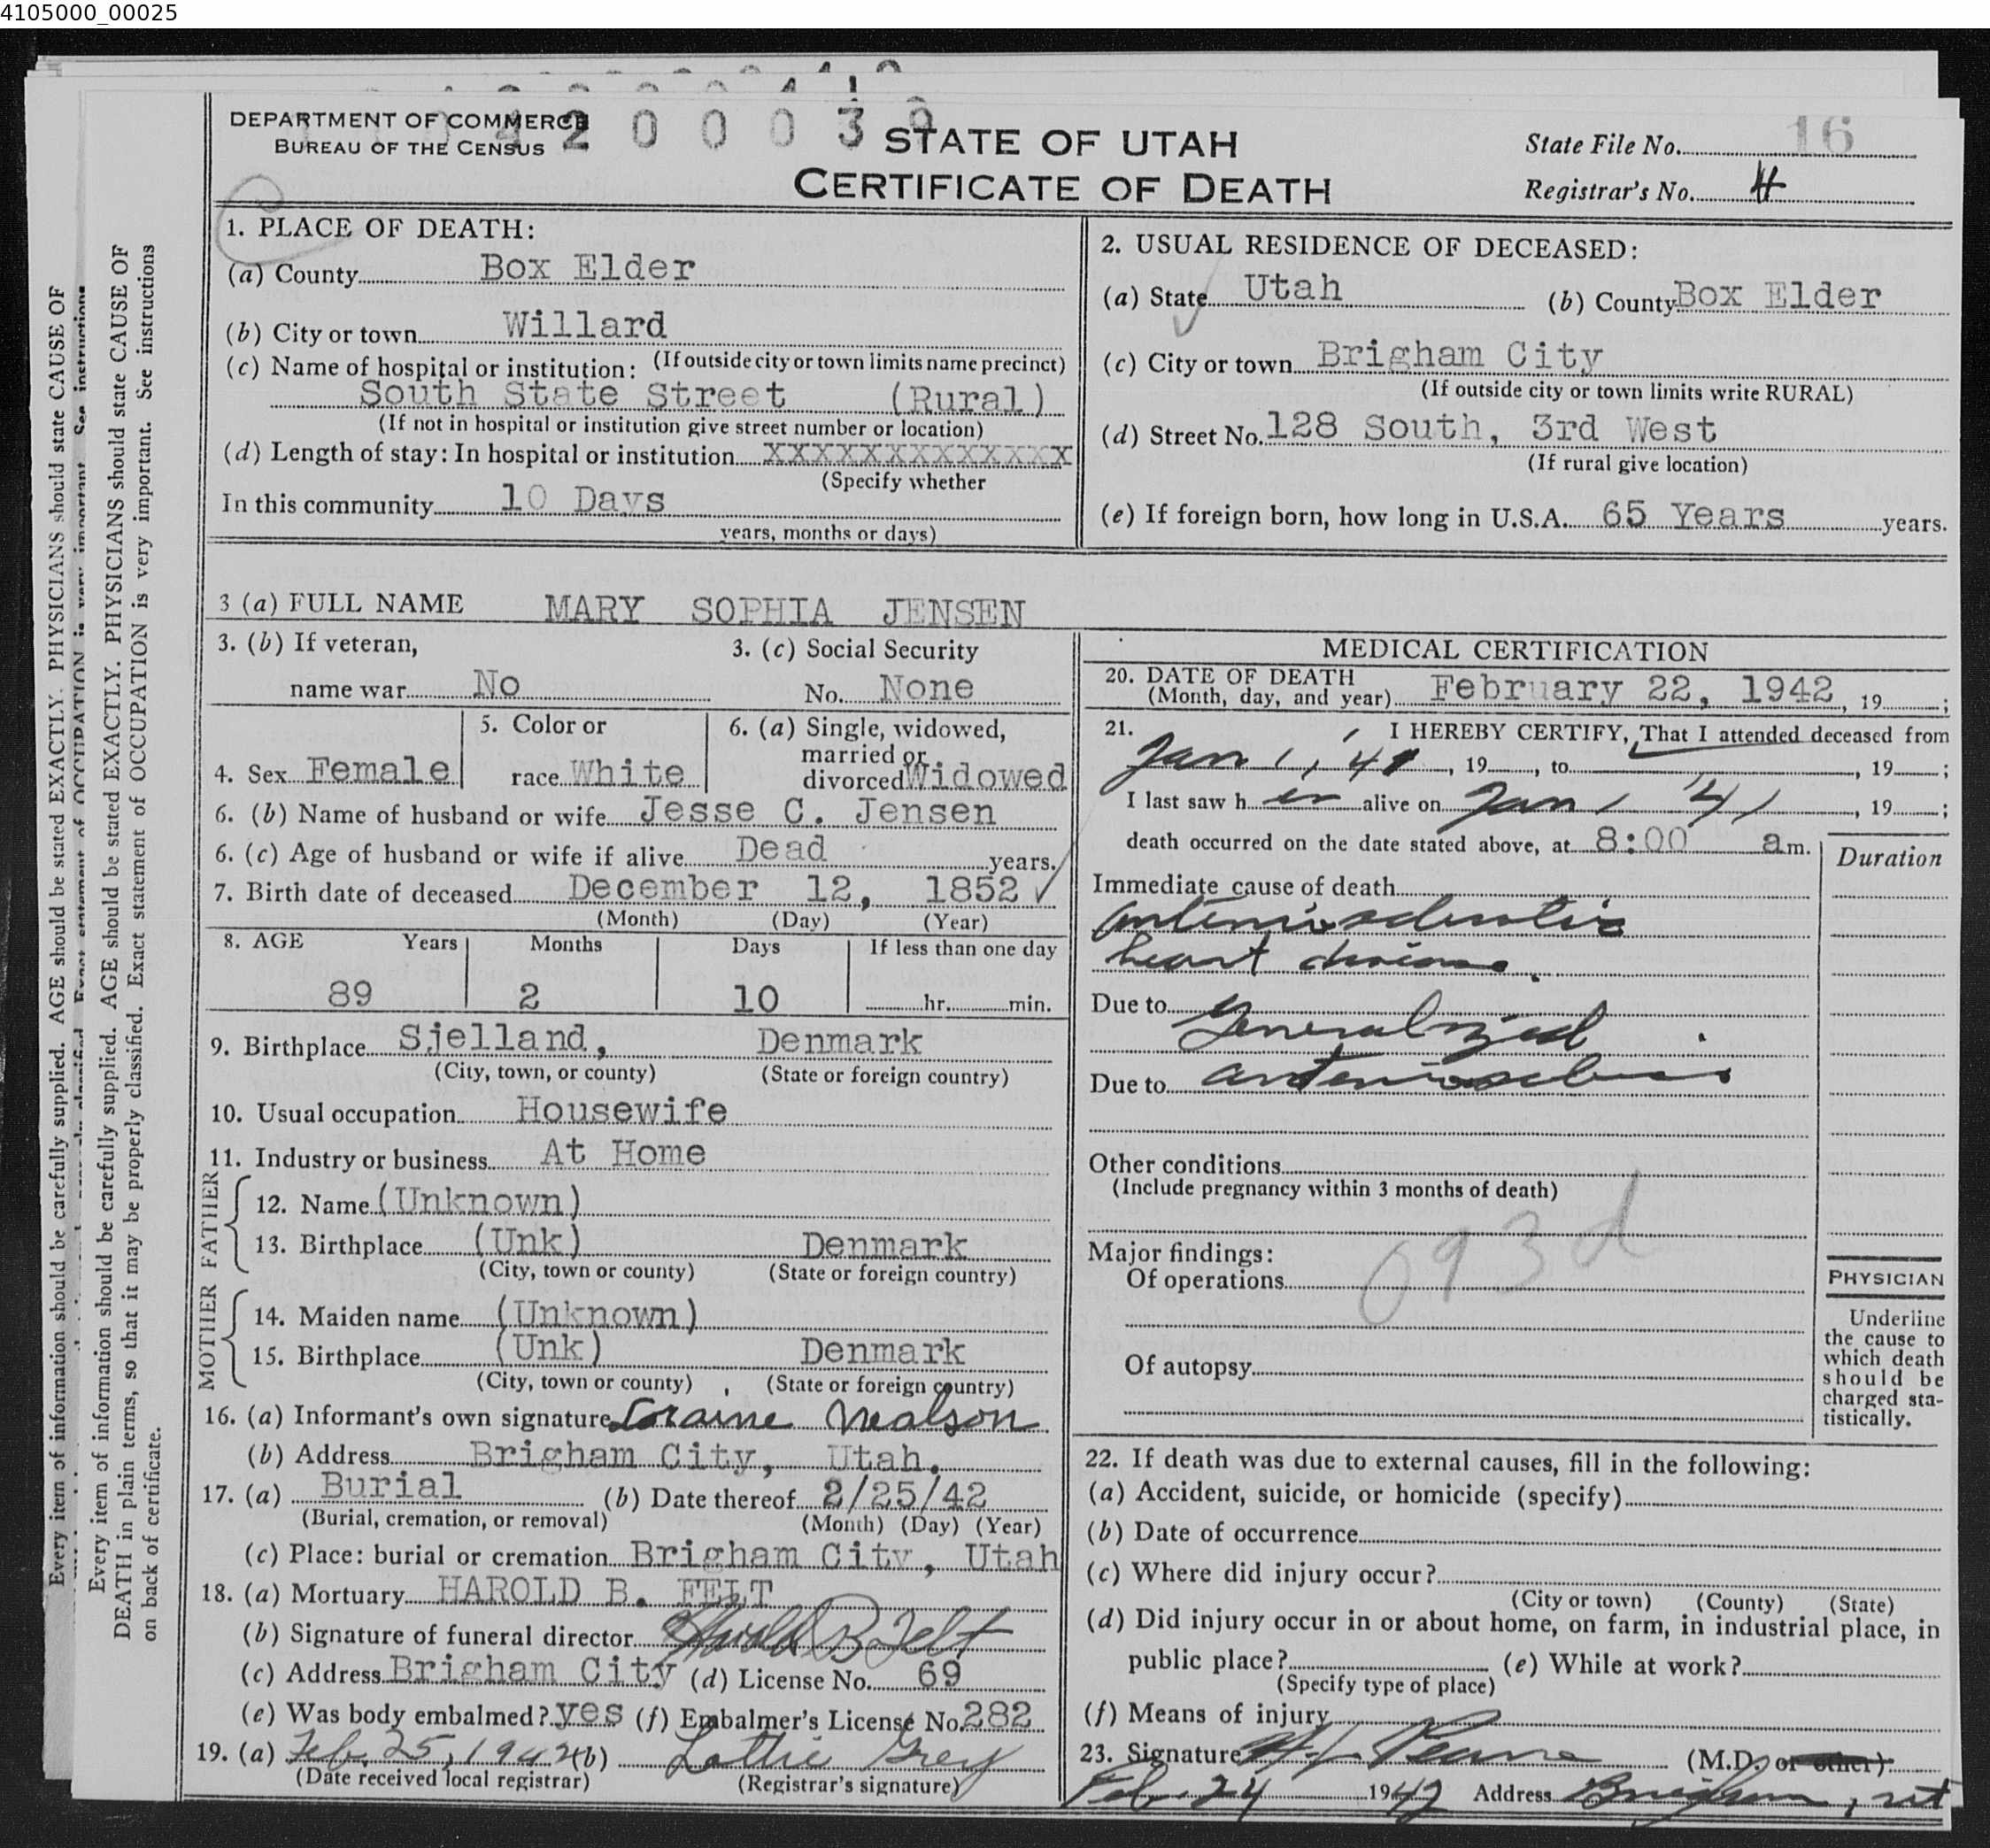 4105000_00025
DEPARTMENT OF COMMERCE
BUREAU OF THE CENSUS
STATE OF UTAH
CERTIFICATE OF DEATH
State File No. 16
Registrar's No. 4
1. PLACE OF DEATH:
(a) County Box Elder
(b) City or town Willard
(If outside city or town limits name precinct)
(c) Name of hospital or institution:
South State Street (Rural)
(If not in hospital or institution give street number or location)
(d) Length of stay: In hospital or institution XXXXXXXXXXXXX
(Specify whether
In this community 10 Days
years, months or days)
2. USUAL RESIDENCE OF DECEASED:
(a) State Utah (b) County Box Elder
(c) City or town Brigham City
(If outside city or town limits write RURAL)
(d) Street No. 128 South, 3rd West
(If rural give location)
(e) If foreign born, how long in U.S.A. 65 Years years.
3 (a) FULL NAME MARY SOPHIA JENSEN
3. (b) If veteran, 3. (c) Social Security
name war No No. None
4. Sex Female
5. Color or
race White
6. (a) Single, widowed,
married or
divorced Widowed
6. (b) Name of husband or wife Jesse C. Jensen
6. (c) Age of husband or wife if alive Dead years.
7. Birth date of deceased December 12, 1852
(Month) (Day) (Year)
8. AGE Years Months Days If less than one day
89 2 10 hr. min.
9. Birthplace Sjelland, Denmark
(City, town, or county) (State or foreign country)
10. Usual occupation Housewife
11. Industry or business At Home
FATHER
12. Name (Unknown)
13. Birthplace (Unk) Denmark
(City, town or county) (State or foreign country)
MOTHER
14. Maiden name (Unknown)
15. Birthplace (Unk) Denmark
(City, town or county) (State or foreign country)
16. (a) Informant's own signature Loraine Nealson
(b) Address Brigham City, Utah.
17. (a) Burial (b) Date thereof 2/25/42
(Burial, cremation, or removal) (Month) (Day) (Year)
(c) Place: burial or cremation Brigham City, Utah
18. (a) Mortuary HAROLD B. FELT
(b) Signature of funeral director Harold B Felt
(c) Address Brigham City (d) License No. 69
(e) Was body embalmed? yes (f) Embalmer's License No. 282
19. (a) Feb. 25, 1942 (b) Lottie Grey
(Date received local registrar) (Registrar's signature)
MEDICAL CERTIFICATION
20. DATE OF DEATH
(Month, day, and year) February 22, 1942, 19 ;
21. I HEREBY CERTIFY, That I attended deceased from
Jan 1, '41, 19 , to , 19 ;
I last saw h er alive on Jan 1 '41, 19 ;
death occurred on the date stated above, at 8:00 a m.
Duration
Immediate cause of death
arteriosclerotic
heart disease.
Due to Generalized
Due to arteriosclerosis
Other conditions
(Include pregnancy within 3 months of death)
093d
Major findings:
Of operations
Of autopsy
PHYSICIAN
Underline
the cause to
which death
should be
charged sta-
tistically.
22. If death was due to external causes, fill in the following:
(a) Accident, suicide, or homicide (specify)
(b) Date of occurrence
(c) Where did injury occur?
(City or town) (County) (State)
(d) Did injury occur in or about home, on farm, in industrial place, in
public place? (e) While at work?
(Specify type of place)
(f) Means of injury
23. Signature (M.D. or other)
Feb. 24 1942 Address Brigham, Ut
Every item of information should be carefully supplied. AGE should be stated EXACTLY. PHYSICIANS should state CAUSE OF
Every item of information should be carefully supplied. AGE should be stated EXACTLY. PHYSICIANS should state CAUSE OF
DEATH in plain terms, so that it may be properly classified. Exact statement of OCCUPATION is very important. See instructions
on back of certificate.